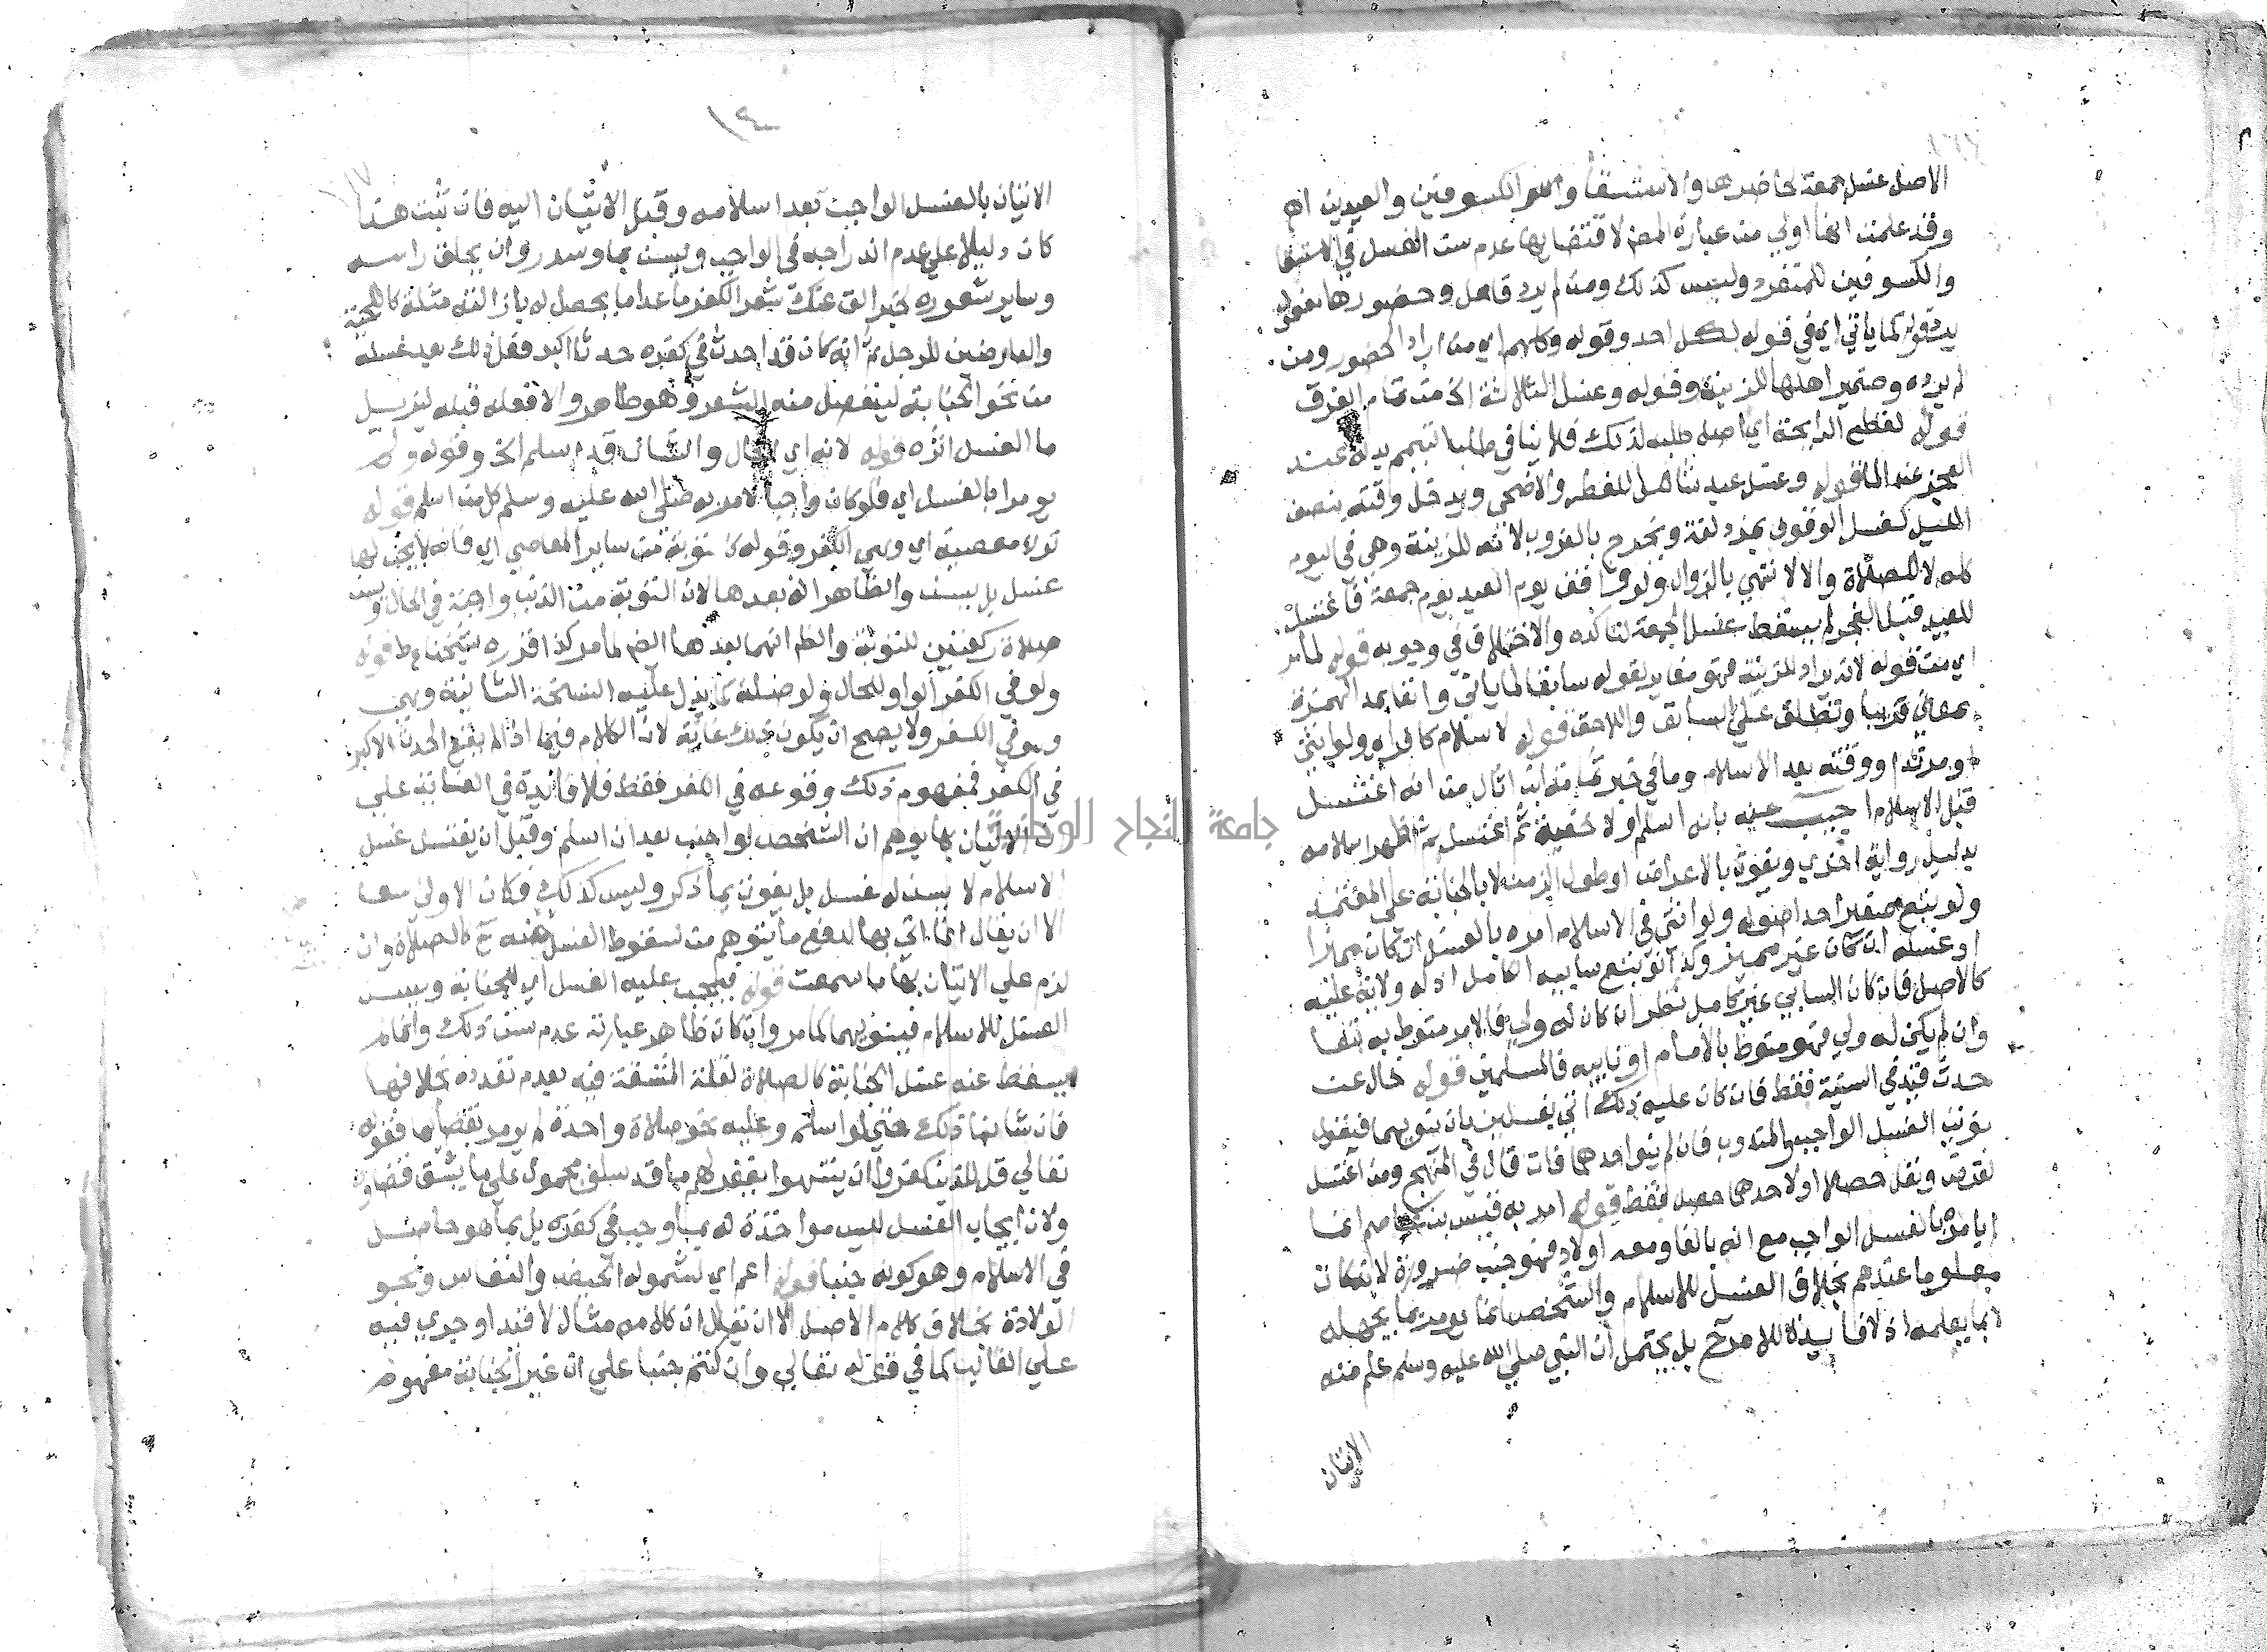 الاصل غسل جمعة لحاضرها والاستسقا والكسوفين والعيدين اهـ
وقد علمت انها اولي من عبارة المص لاقتضايها عدم سن الغسل في الاستسقا
والكسوفين للمنفرد وليس كذلك ومن لم يرد قاصل وحضورها
كما ياتي اي في قوله لكل احد وقوله وكلهم اي من اراد الحضور ومن
لم يرده وضمير اهلها للزينة وقوله وغسل الثلاثة الخ من تمام الفرق
قوله لقطع الرايحة اي اصل طلبه لذلك فلا ينافي طلب التيمم بدله عند
العجز عنه الما قوله وغسل عيد شامل للفطر والاضحي ويدخل وقته بنصف
الليل كغسل الوقوف بمزدلفة ويخرج بالغروب لانه للزينة وهي في اليوم
كله لا للصلاة والا لانتهي بالزوال ولو وافق يوم العيد يوم جمعة فاغتسل
للعيد قبل الفجر لم يسقط غسل الجمعة لتاكده والاختلاف في وجوبه قوله لما مر
اي من قوله لانه يراد للزينة فهو مغاير لقوله سابقا لما ياتي وانفا بمد الهمزة
بمعني قريبا وتطلق علي السابق واللاحق قوله لاسلام كافر اي ولو انثي
او مرتدا ووقته بعد الاسلام وما في خبر ثمامة ابن اثال من انه اغتسل
قبل الاسلام اجيب عنه بانه اسلم اولا خفية ثم اغتسل ثم اظهر اسلامه
بدليل رواية اخري ويفوت بالاعراض او طول الزمن لا بالجنابة علي المعتمد
ولو تبع صغير احد اصوله ولو انثي في الاسلام امره بالغسل ان كان مميزا
او غسله ان كان غير مميز وكذا لو تبع سابيه الكامل اذ له ولاية عليه
كالاصل فان كان السابي غير كامل نظر ان كان له ولي فالامر منوط به تبعا
وان لم يكن له ولي فهو منوط بالامام او نايبه فالمسلمين قوله خال عن
حدث قيد في السنية فقط فان كان عليه ذلك اتي بغسلين بان ينويهما فيقول
نويت الغسل الواجب والمندوب فان لم ينو احدهما فات قال في المنهج ومن اغتسل
لفرض ونفل حصلا او لاحدهما حصل فقط قوله امر به قيس بن عاصم انما
بالغسل الواجب مع انه بالغا ومعه اولاد فهو جنب ضرورة لانه كان
معلوما عندهم بخلاف الغسل للاسلام والشخص انما يومر بما يجهله
لا بما يعلمه اذ لا فايدة للامر ح بل يحتمل ان النبي صلي الله عليه وسلم علم منه
الاتيان
١٤
الاتيان بالغسل الواجب بعد اسلامه وقبل الاتيان اليه فان ثبت هذا
كان دليلا علي عدم اندراجه في الواجب ويسن بما وسدر وان يحلق راسه
وساير شعوره لخبر الق عنك شعر الكفر ما عدا ما يحصل له بازالته مثلة كاللحية
والعارضين للرجل ثم انه كان قد احدث في كفره حدثا اكبر فعل ذلك بعد غسله
من نحو الجنابة لينفصل منه الشعر وهو طاهر والا فعله قبله ليزيل
ما الغسل اثره قوله لانه اي الحال والشان قد اسلم الخ وقوله ولم
يومروا بالغسل اي فلو كان واجبا لامر به صلي الله عليه وسلم كل من اسلم قوله
ترك معصية اي وهي الكفر وقوله كتوبة من ساير المعاصي اي فانه لا يجب لها
غسل بل يسن والظاهر انه بعدها لان التوبة من الذنب واجبة في الحال ويسن
صلاة ركعتين للتوبة والظ انهما بعدها ايضا لما مر كذا قرره شيخنا ع ط قوله
ولو في الكفر الواو للحال ولو صلة كما يدل عليه النسخة الثانية وهي
وهو في الكفر ولا يصح ان يكون ذلك غاية لان الكلام فيما اذا لم يقع الحدث الاكبر
في الكفر فمفهوم ذلك وقوعه في الكفر فقط فلا فايدة في الغاية علي
ان الاتيان بها يوهم ان الشخص لو اجنب بعد ان اسلم وقبل ان يغتسل غسل
الاسلام لا يسن له غسل بل يفوت بما ذكر وليس كذلك فكان الاولي
الا ان يقال انما اتي بها لدفع ما يتوهم من سقوط الغسل عنه ح كالصلاة وان
لزم علي الاتيان بها ما سمعت قوله فيجب عليه الغسل اي للجنابة ويسن
الغسل للاسلام فينويهما كما مر وان كان ظاهر عبارته عدم سن ذلك وانما لم
يسقط عنه غسل الجنابة كالصلاة لقلة المشقة فيه بعدم تعدده بخلافها
فان شانها ذلك حتي لو اسلم وعليه نحو صلاة واحدة لم يومر بقضايها فقوله
تعالي قل للذين كفروا ان ينتهوا يغفر لهم ما قد سلف محمول علي ما يشق قضاوه
ولان ايجاب الغسل ليس مواخذة له بما وجب في كفره بل بما هو حاصل
في الاسلام وهو كونه جنبا قوله اعم اي لشموله الحيض والنفاس ونحو
الولادة بخلاف كلام الاصل الا ان يقال ان كلامه مثال لا قيد او جري فيه
علي الغالب كما في قوله تعالي وان كنتم جنبا علي ان غير الجنابة مفهوم
جامعة النجاح الوطنية